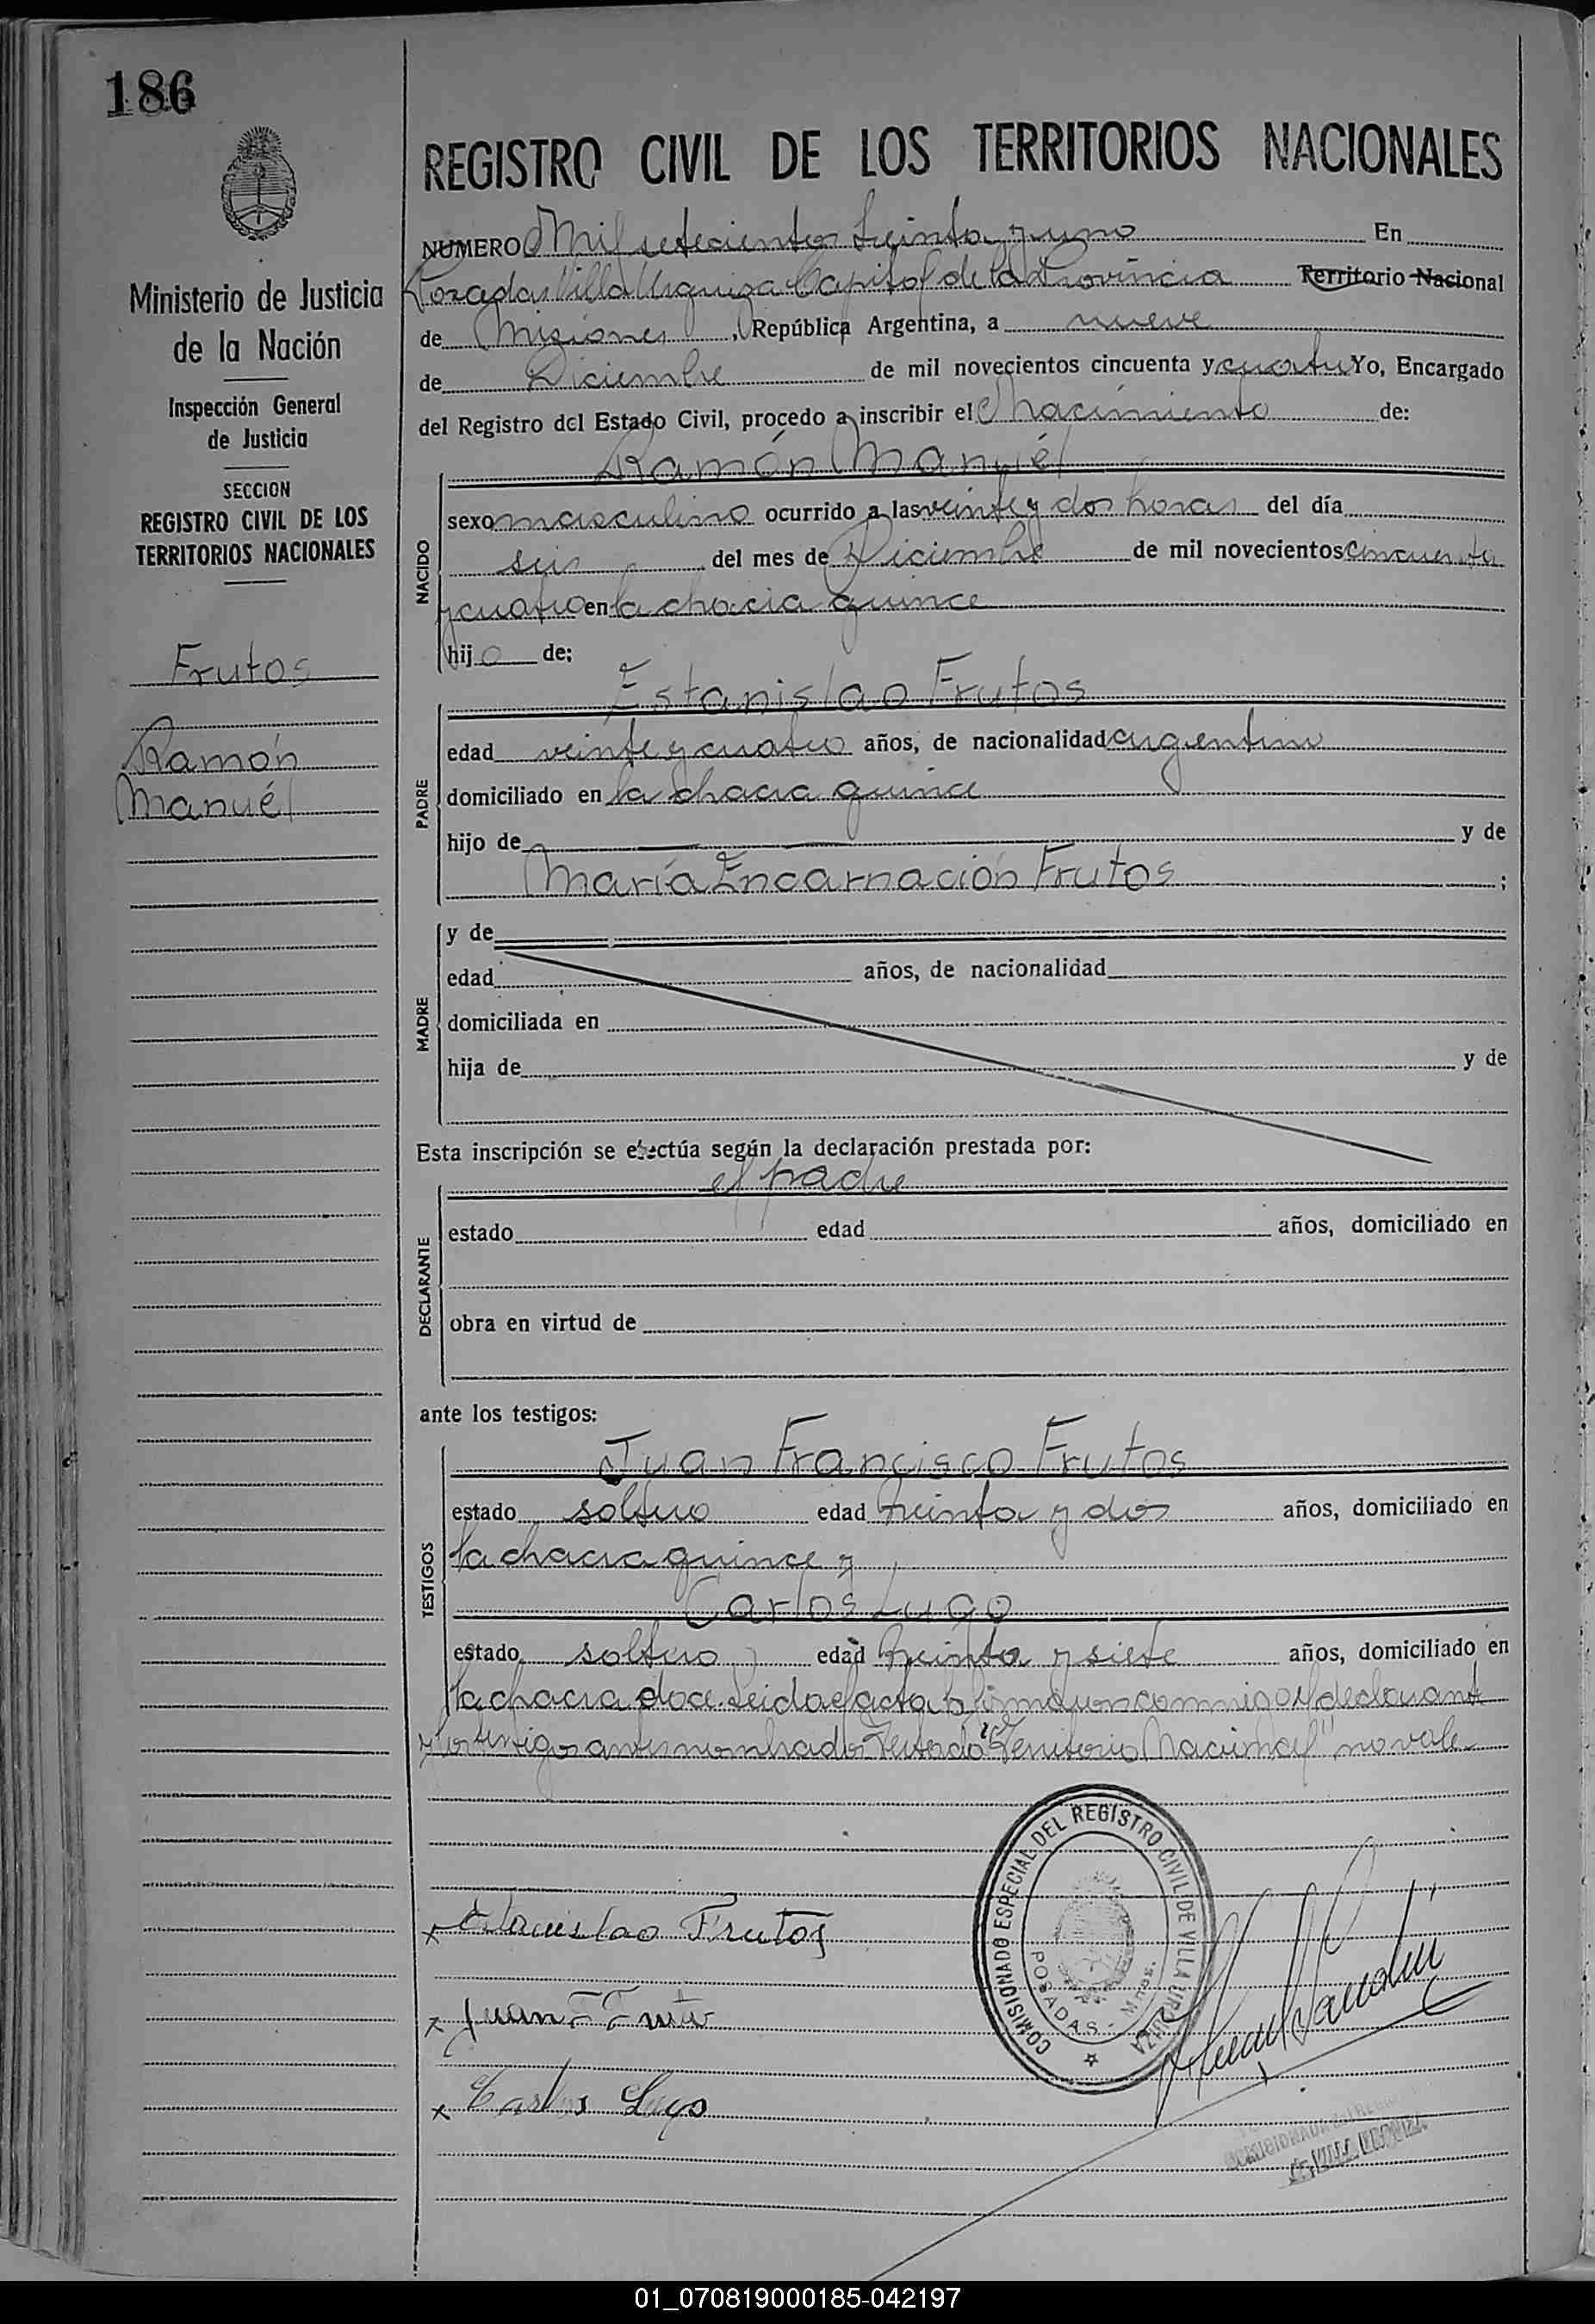 186
REGISTRO CIVIL DE LOS TERRITORIOS NACIONALES
NUMERO Mil setecientos treinta y uno En
Posadas Villa Urquiza Capital de la Provincia Territorio Nacional
de Misiones, República Argentina, a nueve
de Diciembre de mil novecientos cincuenta y cuatro Yo, Encargado
del Registro del Estado Civil, procedo a inscribir el nacimiento de:
Ramón Manuél
NACIDO
sexo masculino ocurrido a las veinte y dos horas del día
seis del mes de Diciembre de mil novecientos cincuenta
y cuatro en la chacra quince
hijo de:
Estanislao Frutos
PADRE
edad veinte y cuatro años, de nacionalidad argentino
domiciliado en la chacra quince
hijo de y de
María Encarnación Frutos ;
MADRE
y de
edad años, de nacionalidad
domiciliada en
hija de y de
Esta inscripción se efectúa según la declaración prestada por:
el padre
DECLARANTE
estado edad años, domiciliado en
obra en virtud de
ante los testigos:
Juan Francisco Frutos
TESTIGOS
estado soltero edad treinta y dos años, domiciliado en
la chacra quince y
Carlos Lugo
estado soltero edad treinta y siete años, domiciliado en
la chacra doce. Leida el acta la firmaron conmigo el declarante
y los testigos antes nombrados Testado "Territorio Nacional" no vale
x Estanislao Frutos
x Juan F Frutos
x Carlos Lugo
COMISIONADO ESPECIAL DEL REGISTRO CIVIL DE VILLA URQUIZA
POSADAS - Mnes.
Ministerio de Justicia
de la Nación
Inspección General
de Justicia
SECCION
REGISTRO CIVIL DE LOS
TERRITORIOS NACIONALES
Frutos
Ramón
Manuél
01_070819000185-042197